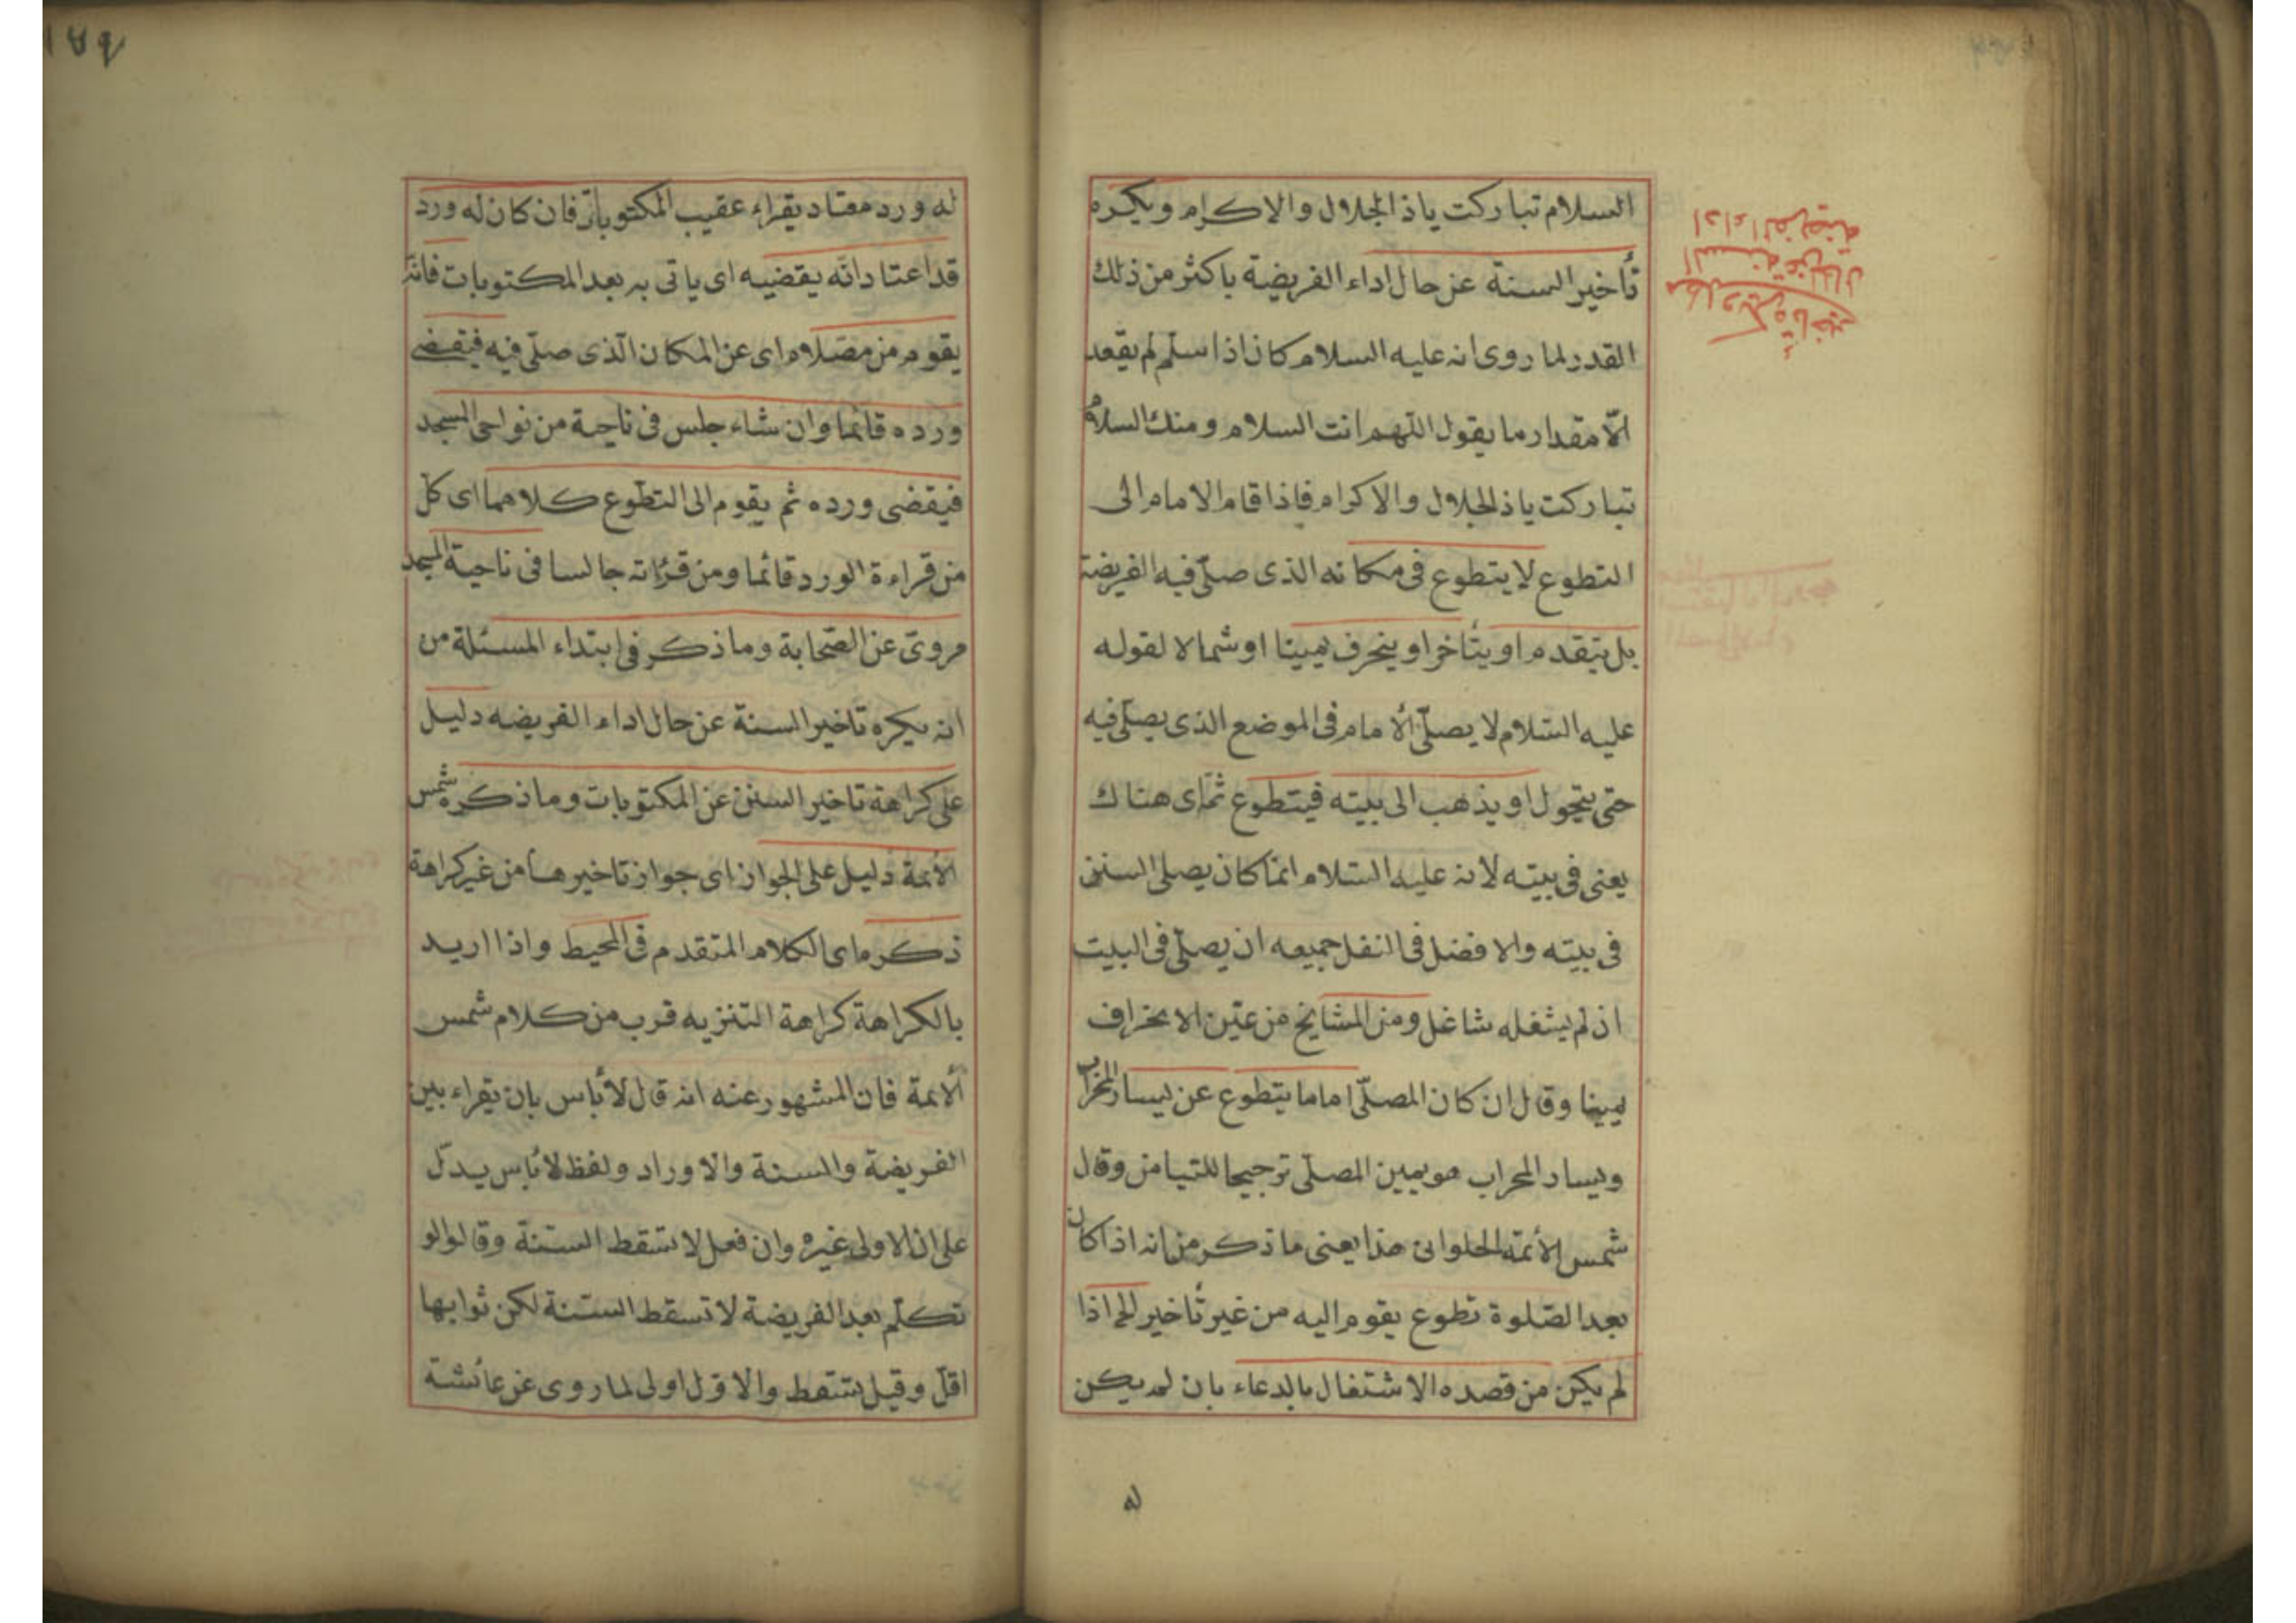 السلام تباركت ياذا الجلال والاكرام ويكره
تأخير السنة عن حال اداء الفريضة باكثر من ذلك
القدر لما روى انه عليه السلام كان اذا سلم لم يقعد
الّا مقدار ما يقول اللهم انت السلام ومنك السلام
تباركت ياذا الجلال والاكرام فاذا قام الامام الى
التطوع لا يتطوع فى مكانه الذى صلّى فيه الفريضة
بل يتقدم او يتأخر او ينحرف يمينا او شمالا لقوله
عليه السّلام لا يصلّى الأمام فى الموضع الذى يصلّى فيه
حتى يتحول او يذهب الى بيته فيتطوع ثمّ اى هناك
يعنى فى بيته لانه عليه السّلام انما كان يصلى السنن
فى بيته والافضل فى النفل جميعه ان يصلّى فى البيت
ان لم يشغله شاغل ومن المشايخ من عيّن الانحراف
يمينا وقال ان كان المصلّى اماما يتطوع عن يسار المحراب
ويسار المحراب هو يمين المصلّى ترجيحا للتيامن وقال
شمس الأئمة الحلوانى هذا يعنى ما ذكر من انه اذا كان
بعد الصّلوة تطوع يقوم اليه من غير تأخير الخ اذا
لم يكن من قصده الاشتغال بالدعاء بان لم يكن
له
١٨٩
له ورد معتاد يقراء عقيب المكتوبات فان كان له ورد
قد اعتاد انّه يقضيه اى ياتى به بعد المكتوبات فانّه
يقوم من مصلاه اى عن المكان الّذى صلّى فيه فيقضى
ورده قائما وان شاء جلس فى ناحية من نواحى المسجد
فيقضى ورده ثم يقوم الى التطوع كلاهما اى كلّ
من قراءة الورد قائما ومن قرائته جالسا فى ناحية المسجد
مروىّ عن الصّحابة وما ذكر فى ابتداء المسئلة من
انه يكره تاخير السنة عن حال اداء الفريضه دليل
على كراهة تاخير السنن عن المكتوبات وما ذكره شمس
الأئمة دليل على الجواز اى جواز تاخيرها من غير كراهة
ذكره اى الكلام المتقدم فى المحيط واذا اريد
بالكراهة كراهة التنزيه قرب من كلام شمس
ألائمة فان المشهور عنه انه قال لأباس بان يقراء بين
الفريضة والسنة والاوراد ولفظ لاباس يدلّ
على ان الاولى غيره وان فعل لا تسقط السّنة وقالوا لو
تكلّم بعد الفريضة لا تسقط السّنة لكن ثوابها
اقلّ وقيل تسقط والاول اولى لما روى عن عائشة